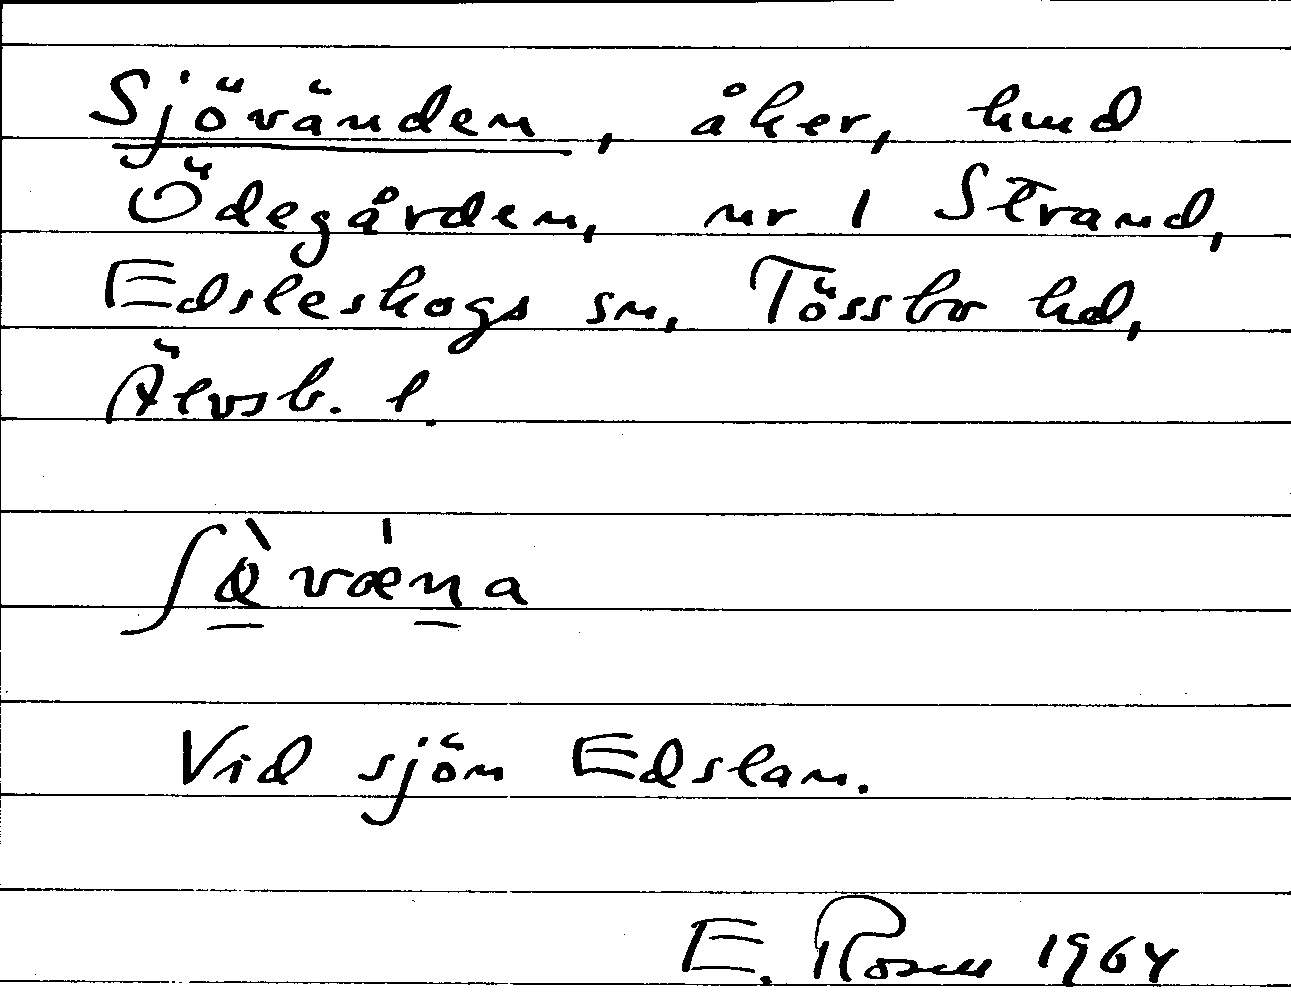 Sjövänden, åker, hmd
Ödegården, nr 1 Strand,
Edsleskogs sn, Tössbo hd,
Älvsb. l.
Vid sjön Edslan.
E. Rosen 1964